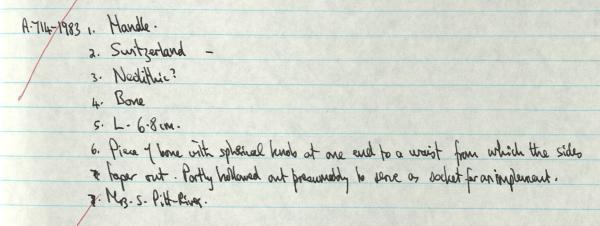 A.714-1983 1. Handle.
2. Switzerland -
3. Neolithic?
4. Bone
5. L. 6.8cm.
6. Piece of bone with spherical knob at one end to a waist from which the sides
taper out. Partly hollowed out presumably to serve as socket for an implement.
7. Mrs. S. Pitt-Rivers.